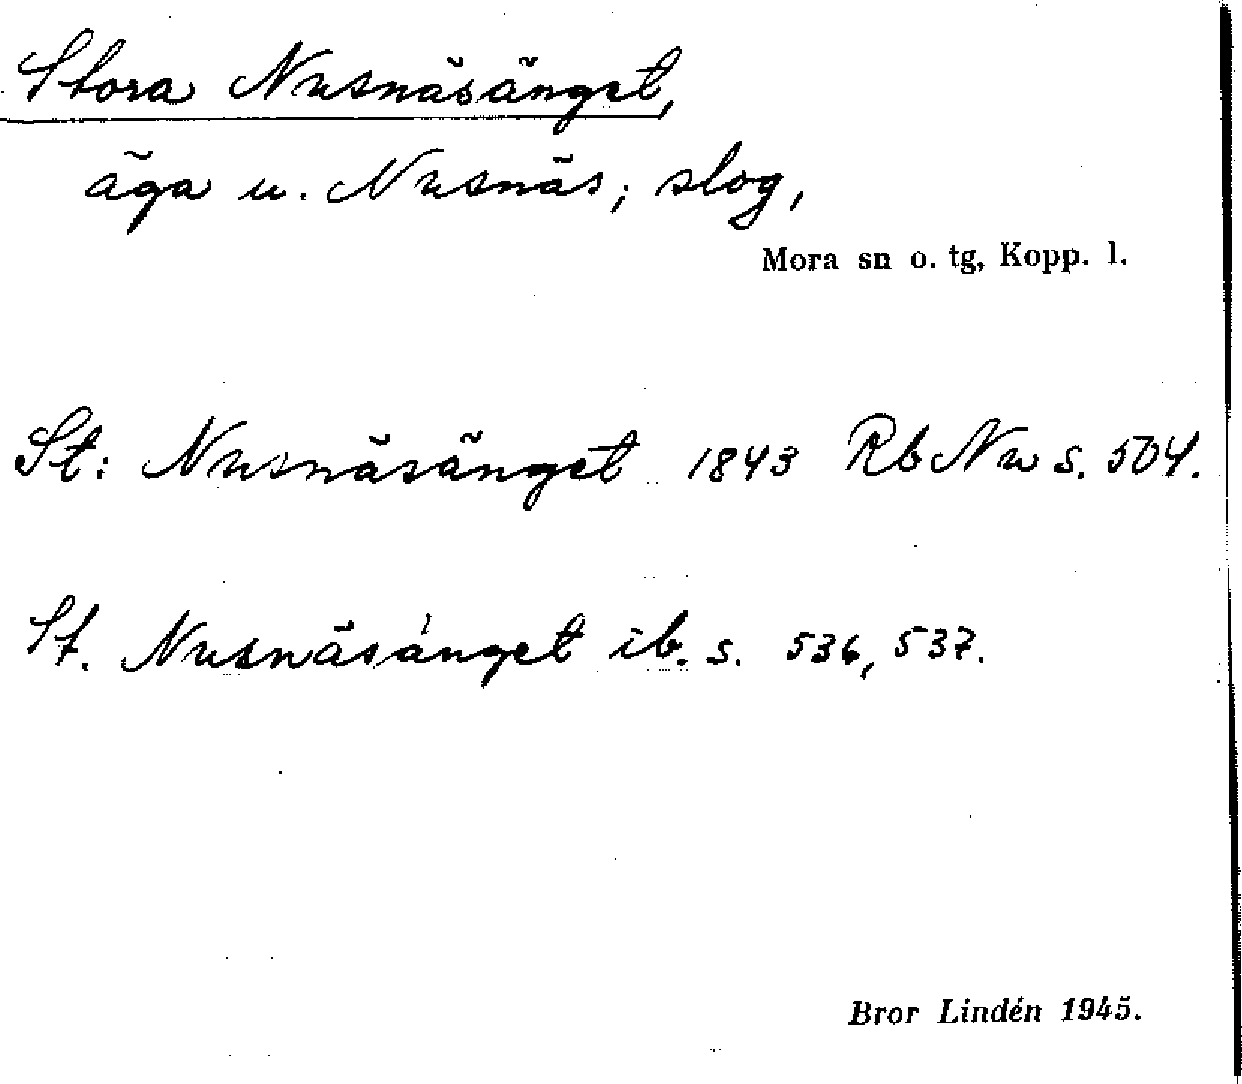 Stora Nusnäsänget,
äga u. Nusnäs; slog,
Mora sn o. tg, Kopp. l.
St: Nusnäsänget 1843 Rb Nu s. 504.
St. Nusnäsänget ib. s. 536, 537.
Bror Lindén 1945.